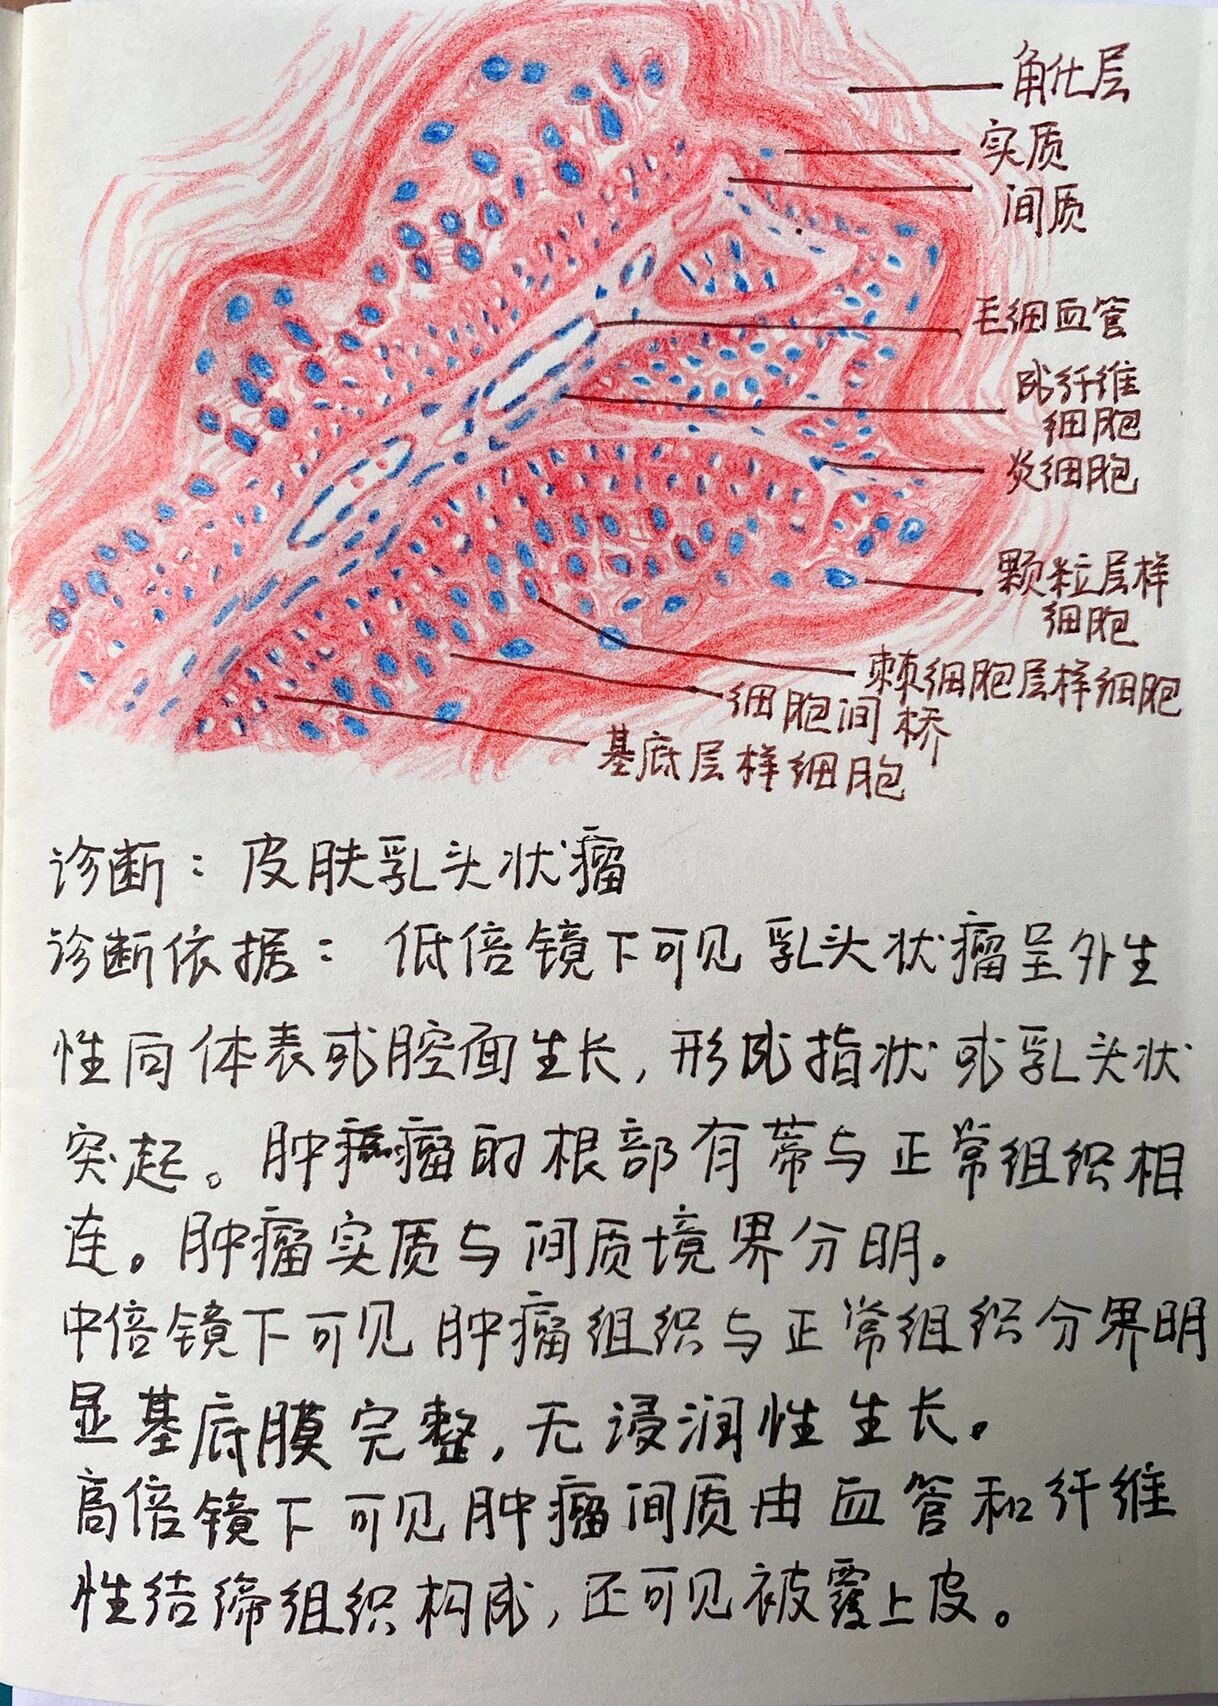 角化层
实质
间质
毛细血管
成纤维
细胞
炎细胞
颗粒层样
细胞
棘细胞层样细胞
细胞间桥
基底层样细胞
诊断：皮肤乳头状瘤
诊断依据：低倍镜下可见乳头状瘤呈外生
性向体表或腔面生长，形成指状或乳头状
突起。肿瘤的根部有蒂与正常组织相
连。肿瘤实质与间质境界分明。
中倍镜下可见肿瘤组织与正常组织分界明
显基底膜完整，无浸润性生长。
高倍镜下可见肿瘤间质由血管和纤维
性结缔组织构成，还可见被覆上皮。